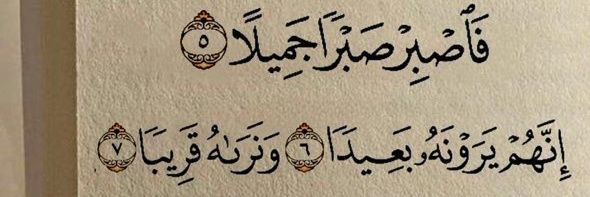 فَٱصۡبِرۡ صَبۡرٗا جَمِيلًا ٥
إِنَّهُمۡ يَرَوۡنَهُۥ بَعِيدٗا ٦ وَنَرَىٰهُ قَرِيبٗا ٧